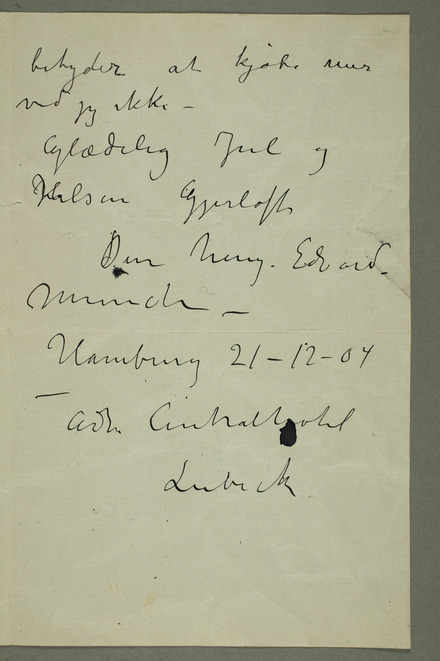 betyder at kjøbe mer
ved jeg ikke –
Glædelig Jul og
Hilsen Gjerløffs
Din heng. Edvard
Munch –
Hamburg 21–12–04
adr. Centralhotel
Lubeck